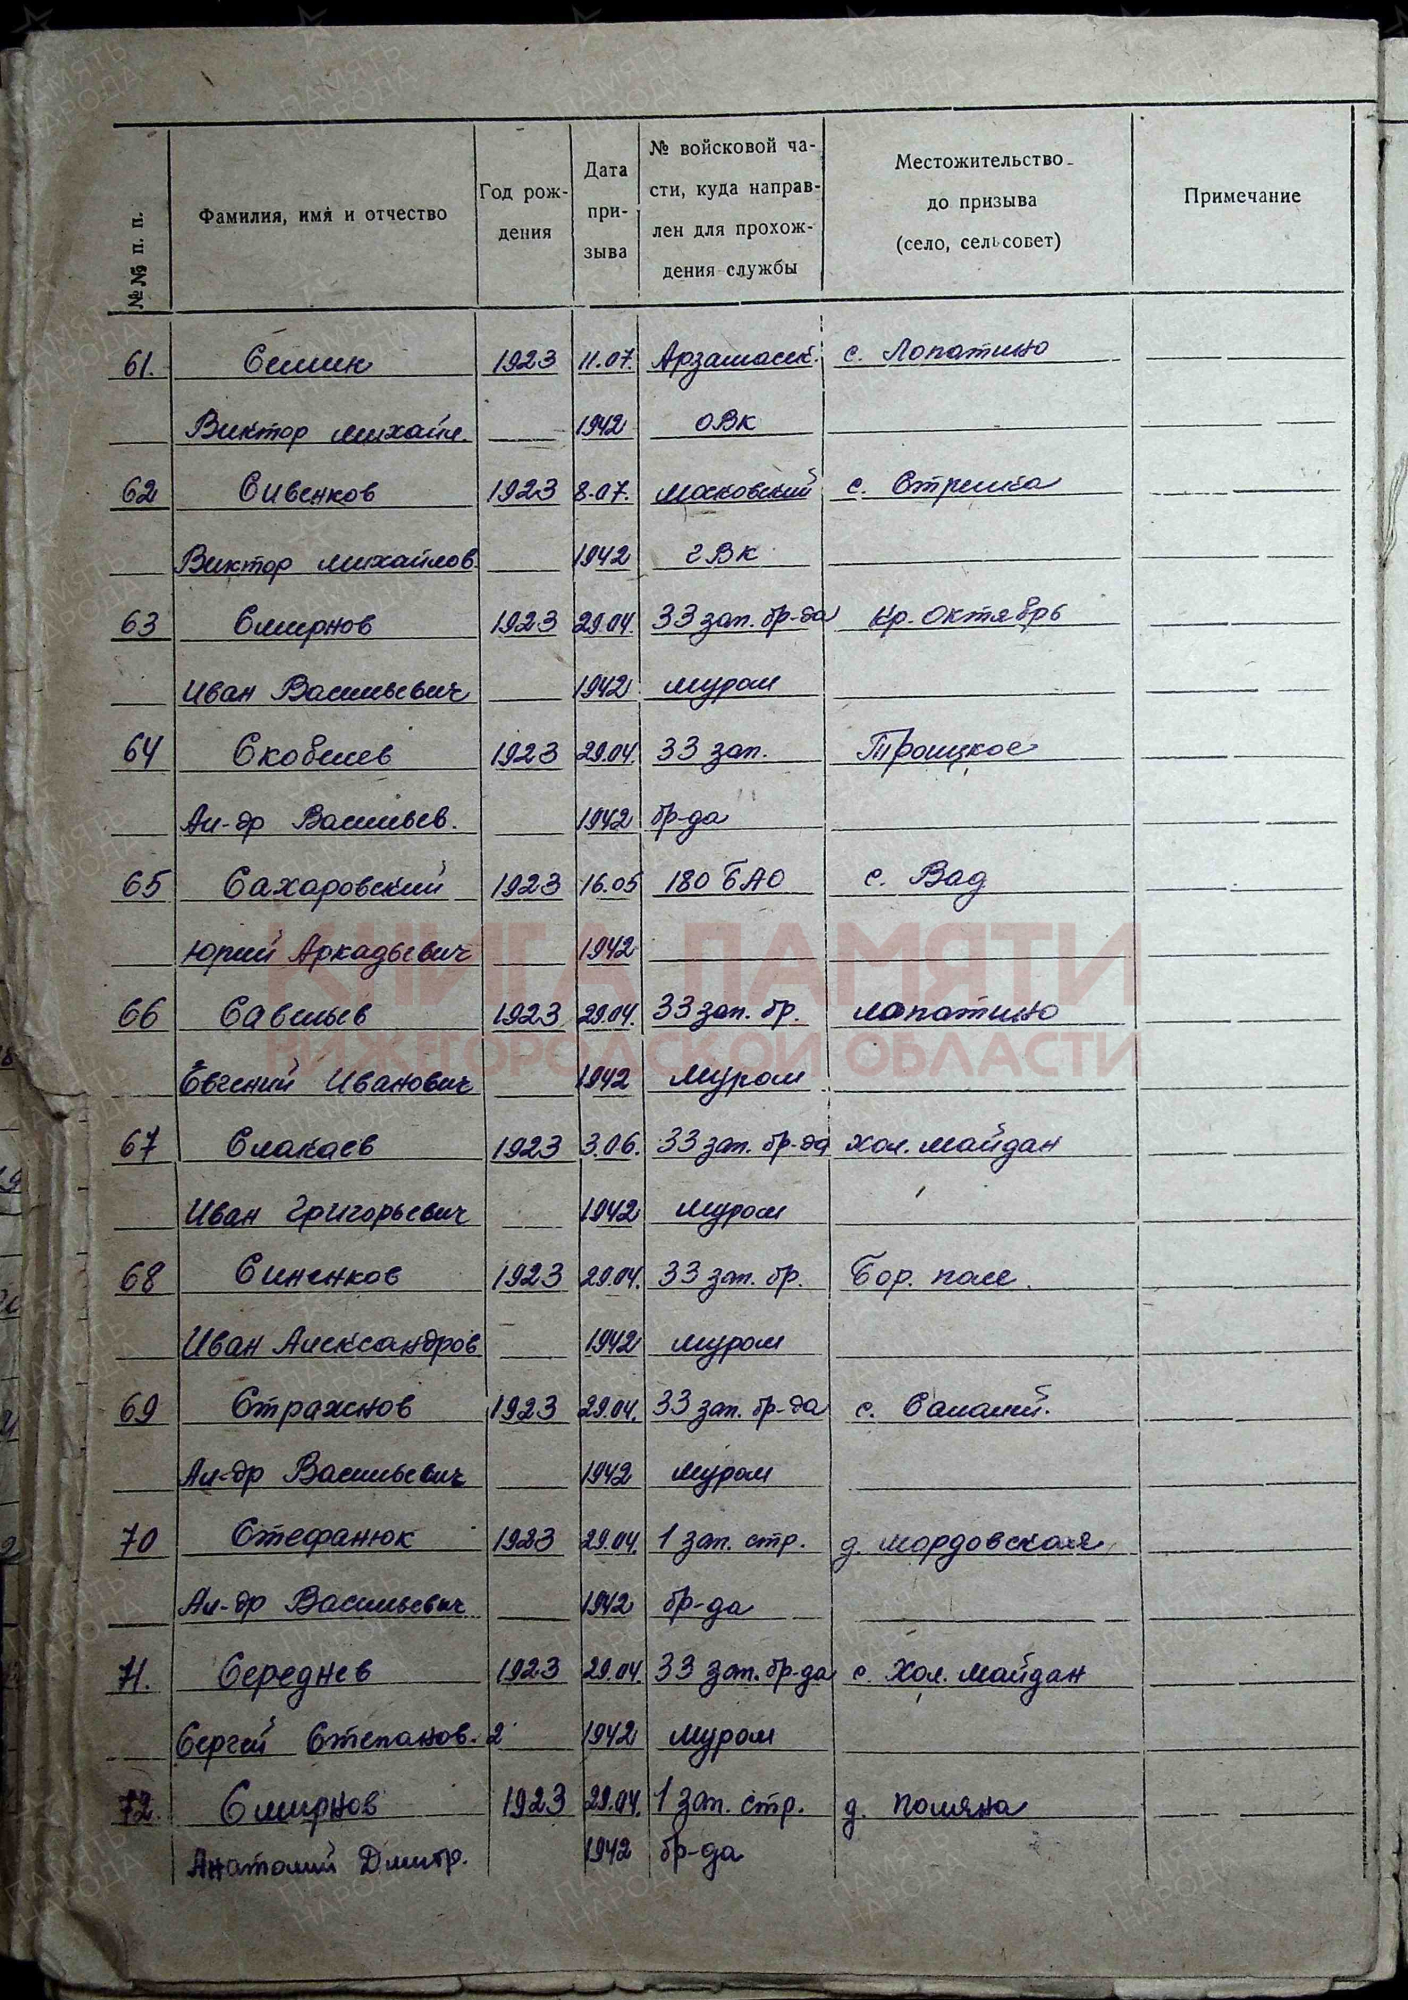 №№ п. п.
Фамилия, имя и отчество
Год рож-
дения
Дата
при-
зыва
№ войсковой ча-
сти, куда направ-
лен для прохож-
дения службы
Местожительство
до призыва
(село, сельсовет)
Примечание
61. Семин 1923 11.07. Арзамасск. с. Лопатино
Виктор Михайл. 1942 ОВК
62 Сивенков 1923 8.07. Московский с. Стрелка
Виктор Михайлов. 1942 гВК
63 Смирнов 1923 29.04. 33 зап. бр-да Кр. Октябрь
Иван Васильевич 1942 Муром
64 Скобелев 1923 29.04. 33 зап. Троицкое
Ал-др Васильев. 1942 бр-да
65 Сахаровский 1923 16.05 180 БАО с. Вад
Юрий Аркадьевич 1942
66 Савельев 1923 29.04. 33 зап. бр. Лопатино
Евгений Иванович 1942 Муром
67 Слакаев 1923 3.06. 33 зап. бр-да Хол. Майдан
Иван Григорьевич 1942 Муром
68 Синенков 1923 29.04. 33 зап. бр. Бор. поле.
Иван Александров 1942 Муром
69 Страхнов 1923 29.04. 33 зап. бр-да с.
Ал-др Васильевич 1942 Муром
70 Стефанюк 1923 29.04. 1 зап. стр. д. Мордовская
Ал-др Васильевич 1942 бр-да
71. Середнев 1923 29.04. 33 зап. бр-да с. Хол. Майдан
Сергей Степанов. 2 1942 Муром
72. Смирнов 1923 29.04. 1 зап. стр. д. Поляна
Анатолий Дмитр. 1942 бр-да
КНИГА ПАМЯТИ
НИЖЕГОРОДСКОЙ ОБЛАСТИ
ПАМЯТЬ
НАРОДА